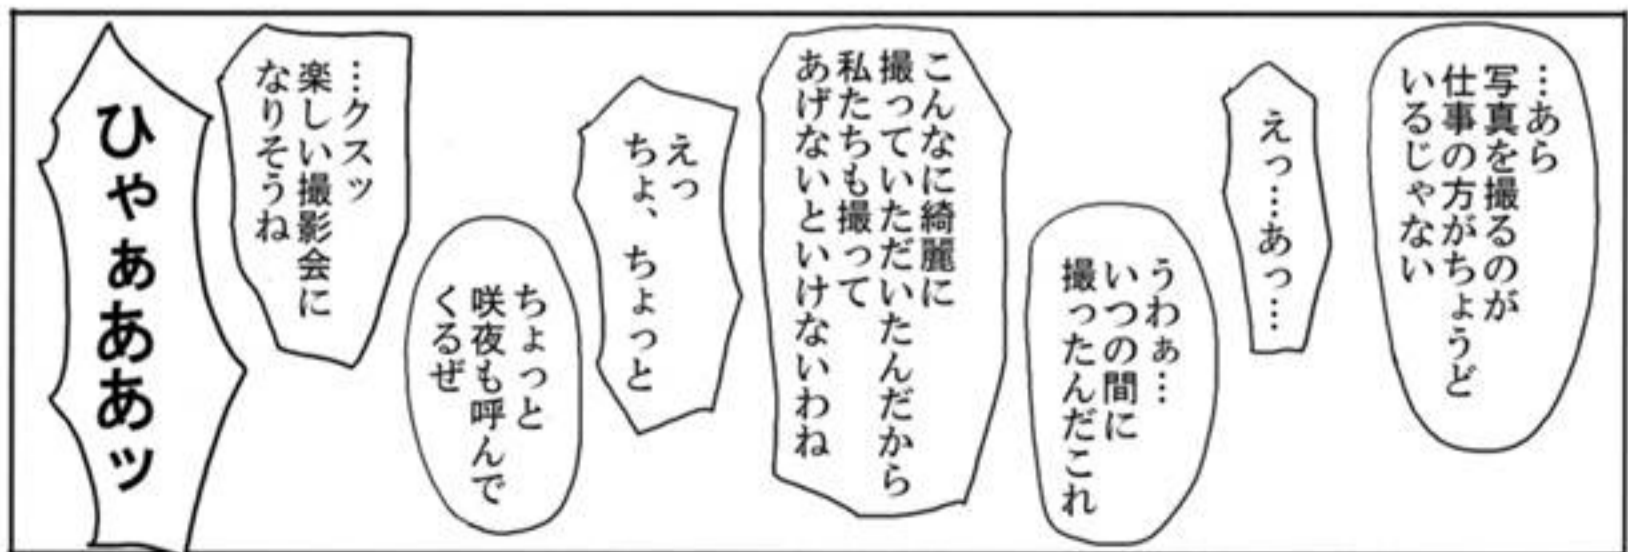 …あら
写真を撮るのが
仕事の方がちょうど
いるじゃない
えっ…あっ…
うわぁ…
いつの間に
撮ったんだこれ
こんなに綺麗に
撮っていただいたんだから
私たちも撮って
あげないといけないわね
えっ
ちょ、ちょっと
ちょっと
咲夜も呼んで
くるぜ
…クスッ
楽しい撮影会に
なりそうね
ひゃぁああッ